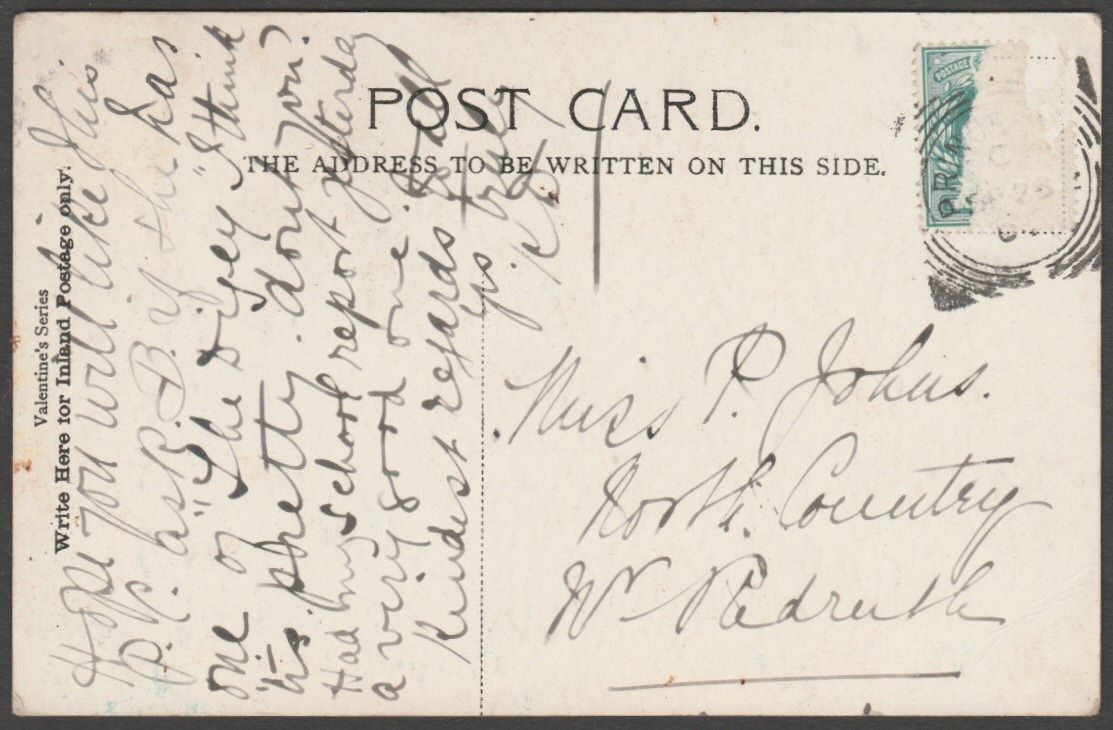 POST CARD.
THE ADDRESS TO BE WRITTEN ON THIS SIDE.
Valentine's Series
Write Here for Inland Postage only.
POSTAGE
Hope you will like this
P.P.C. ask B. B. if she has
one of "The Digey" I think
it's pretty don't you?
Had my School report yesterday
a very good one.
Kindest regards to all
Yrs truly
Miss P. Johns.
North Country
Nr Redruth